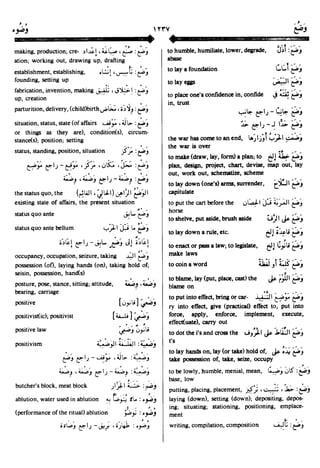 وضع ١٢٣٧ وضوء
making, production; cre- وضع : صنع ، صناعة ، إيجاد
ation; working out, drawing up, drafting
establishment, establishing, وضع : تأسيس ، إنشاء
founding, setting up
fabrication, invention, making وضع : اختلاق ، تلفيق
up, creation
parturition, delivery, (child)birth وضع : ولادة ، مخاض
situation, status, state (of affairs وضع : حالة ، وضعية
or things as they are), condition(s), circum-
stance(s); position; setting
status, standing, position, situation وضع : مركز
وضع : جلسة - راجع وضعة ، وضعة
the status quo, the الوضع الراهن (الحالي ، القائم)
existing state of affairs, the present situation
status quo ante وضع سابق
status quo ante bellum وضع ما قبل الحرب
إعادة إلى وضع سابق - راجع إعادة
occupancy, occupation, seizure, taking وضع اليد
possession (of), laying hands (on), taking hold of;
seisin, possession, hand(s)
posture, pose, stance, sitting; attitude, وضعة ، وضعة
bearing, carriage
positive وضعي [قانون]
positivist(ic), positivist وضعي [فلسفة]
positive law قانون وضعي
positivism وضعية : الفلسفة الوضعية
وضعية : حالة ، وضع - راجع وضع
وضعية : وضعة - راجع وضعة ، وضعة
butcher's block, meat block وضم : خشبة الجزار
ablution, water used in ablution وضوء : ماء يتوضأ به
(performance of the ritual) ablution وضوء : توضؤ
وضوء : نظافة ، حسن - راجع وضاءة
to humble, humiliate, lower, degrade, وضع : أذل
abase
to lay a foundation وضع أساسا
to lay eggs وضع البيض
to place one's confidence in, confide وضع ثقته في
in, trust
وضع جانبا - راجع جانب
وضع حدا لـ - راجع حد
the war has come to an end, وضعت الحرب أوزارها
the war is over
to make (draw, lay, form) a plan; to وضع خطة إلخ
plan, design, project, chart, devise, map out, lay
out, work out, schematize, scheme
to lay down (one's) arms, surrender, وضع السلاح
capitulate
to put the cart before the وضع العربة قبل الحصان
horse
to shelve, put aside, brush aside وضع على الرف
to lay down a rule, etc. وضع قاعدة إلخ
to enact or pass a law; to legislate, وضع قانونا إلخ
make laws
to coin a word وضع كلمة أو لفظة
to blame, lay (put, place, cast) the وضع اللوم على
blame on
to put into effect, bring or car- وضع موضع التنفيذ
ry into effect, give (practical) effect to, put into
force, apply, enforce, implement, execute,
effect(uate), carry out
to dot the i's and cross the وضع النقاط على الحروف
t's
to lay hands on, lay (or take) hold of, وضع يده على
take possession of, take, seize, occupy
to be lowly, humble, menial, mean, وضع : كان وضيعا
base, low
putting, placing, placement, وضع : حط ، تثبيت ، تركيز
laying (down), setting (down), depositing, depos-
ing; situating; stationing, positioning, emplace-
ment
writing, compilation, composition وضع : تأليف